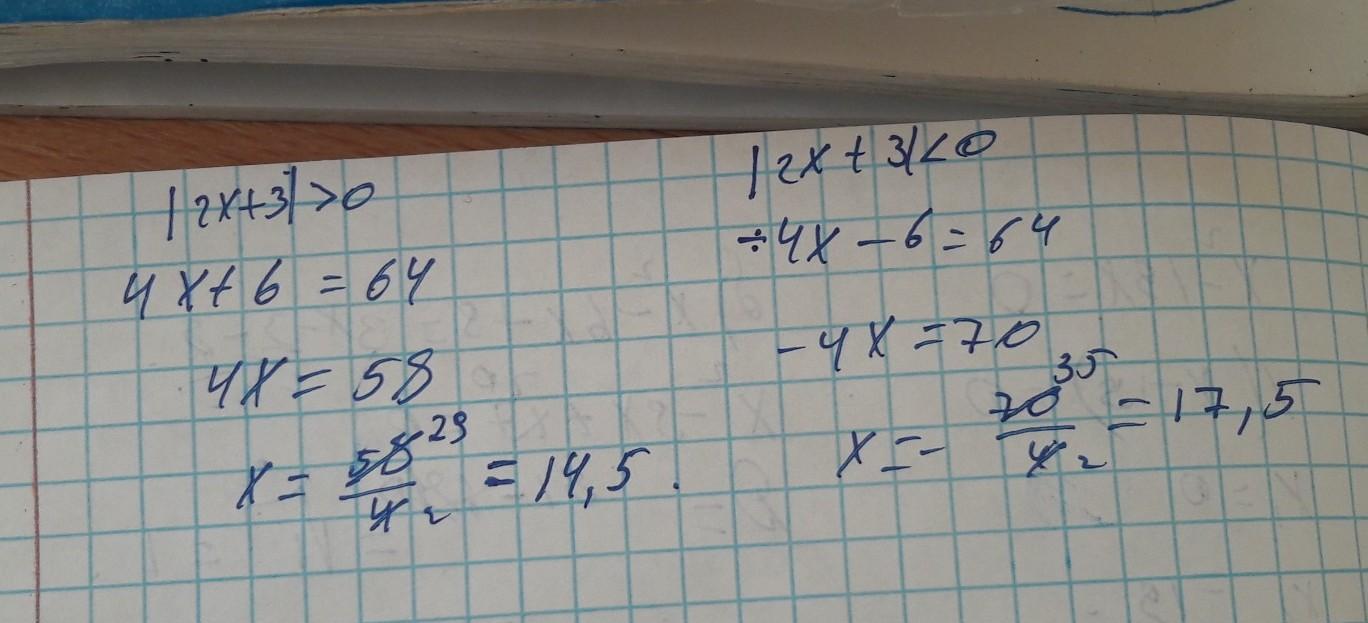 |2x+3|>0
4x+6=64
4x=58
x= 58/4 29/2 =14,5.
|2x+3|<0
÷4x-6=64
-4x=70
x=- 70/4 35/2 =17,5